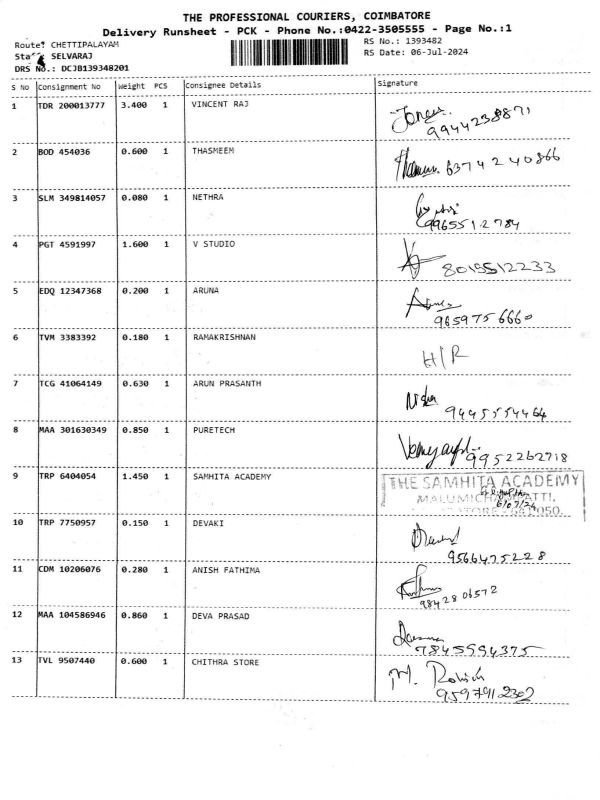 THE PROFESSIONAL COURIERS, COIMBATORE
Delivery Runsheet - PCK - Phone No.:0422-3505555 - Page No.:1
Route: CHETTIPALAYAM
RS No.: 1393482
SELVARAJ
RS Date: 06-Jul-2024
DRS No.: DCJB139348201
S No Consignment No Weight PCS Consignee Details Signature
1 TDR 200013777 3.400 1 VINCENT RAJ
9944238871
2 BOD 454036 0.600 1 THASMEEM 6374240866
3 SLM 349814057 0.080 1 NETHRA
9965512784
4 PGT 4591997 1.600 1 V STUDIO
8015512233
5 EDQ 12347368 0.200 1 ARUNA
9659756660
6 TVM 3383392 0.180 1 RAMAKRISHNAN
H/R
7 TCG 41064149 0.630 1 ARUN PRASANTH
9445554464
8 MAA 301630349 0.850 1 PURETECH
9952262718
9 TRP 6404054 1.450 1 SAMHITA ACADEMY THE SAMHITA ACADEMY
6/07/24
641 050.
10 TRP 7750957 0.150 1 DEVAKI
9566475228
11 CDM 10206076 0.280 1 ANISH FATHIMA
9842806572
12 MAA 104586946 0.860 1 DEVA PRASAD
7845594375
13 TVL 9507440 0.600 1 CHITHRA STORE M.
9597912302